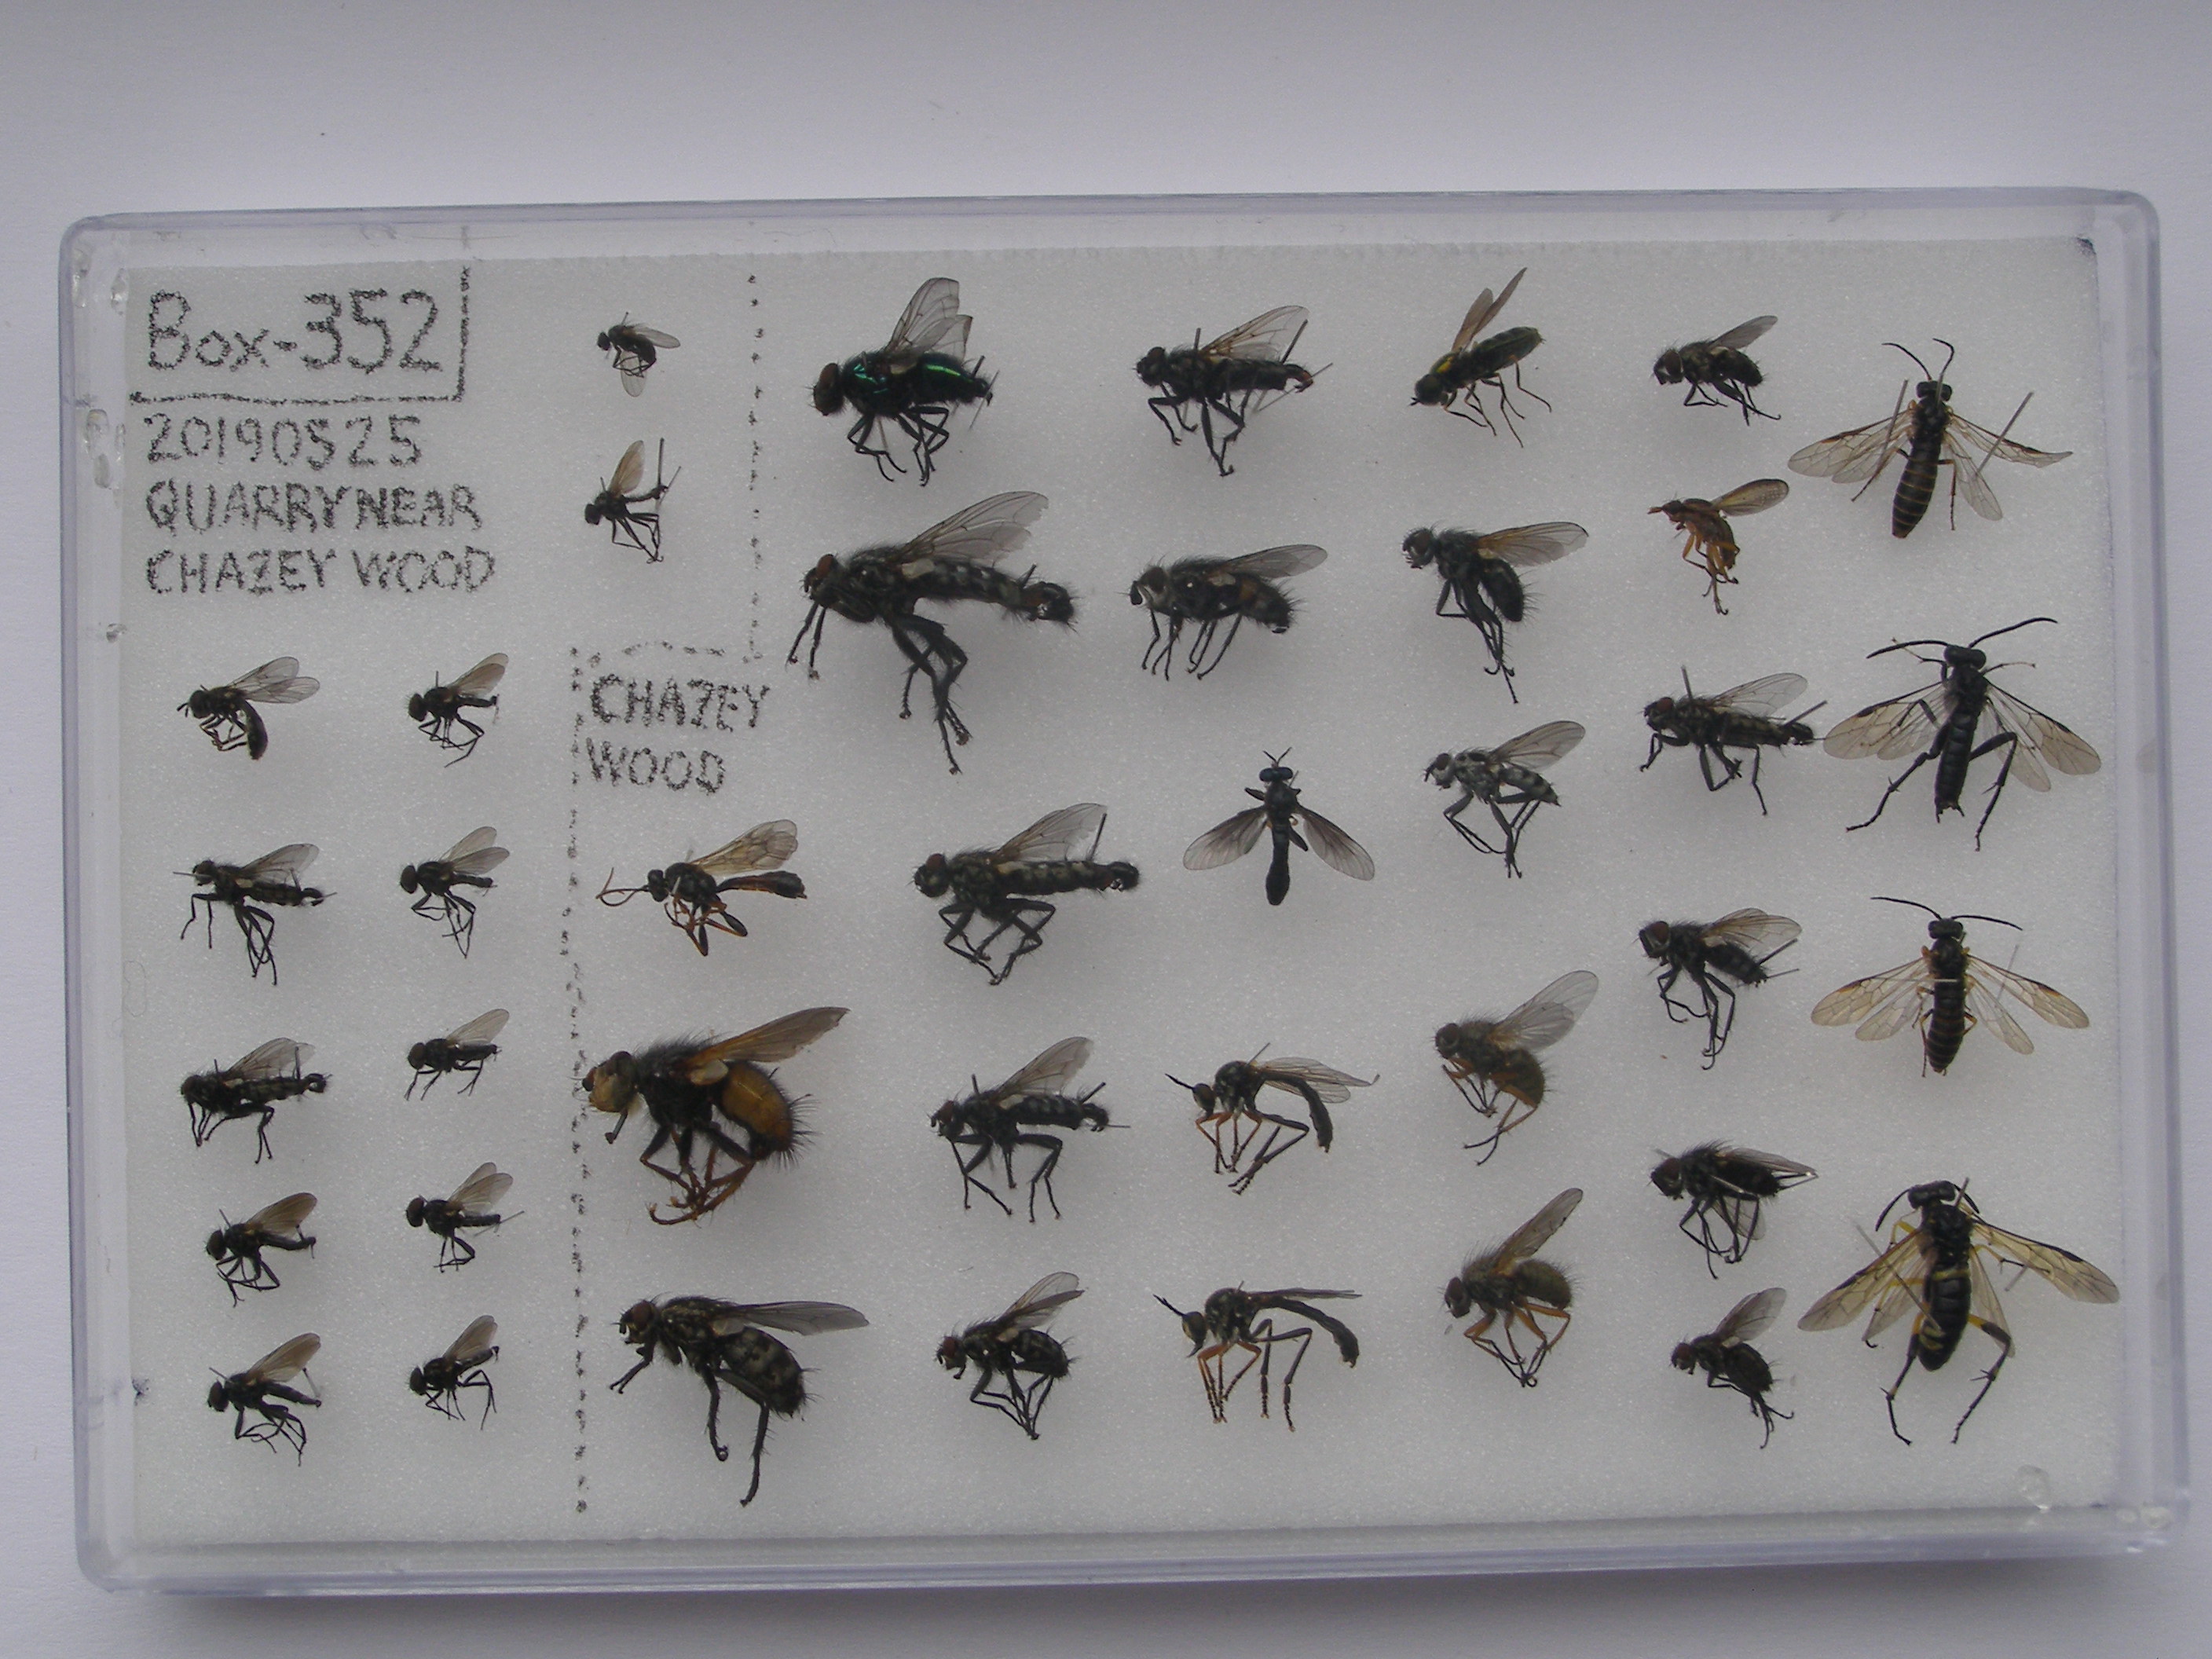 Box-352
20190525
QUARRY NEAR
CHAZEY WOOD
CHAZEY
WOOD